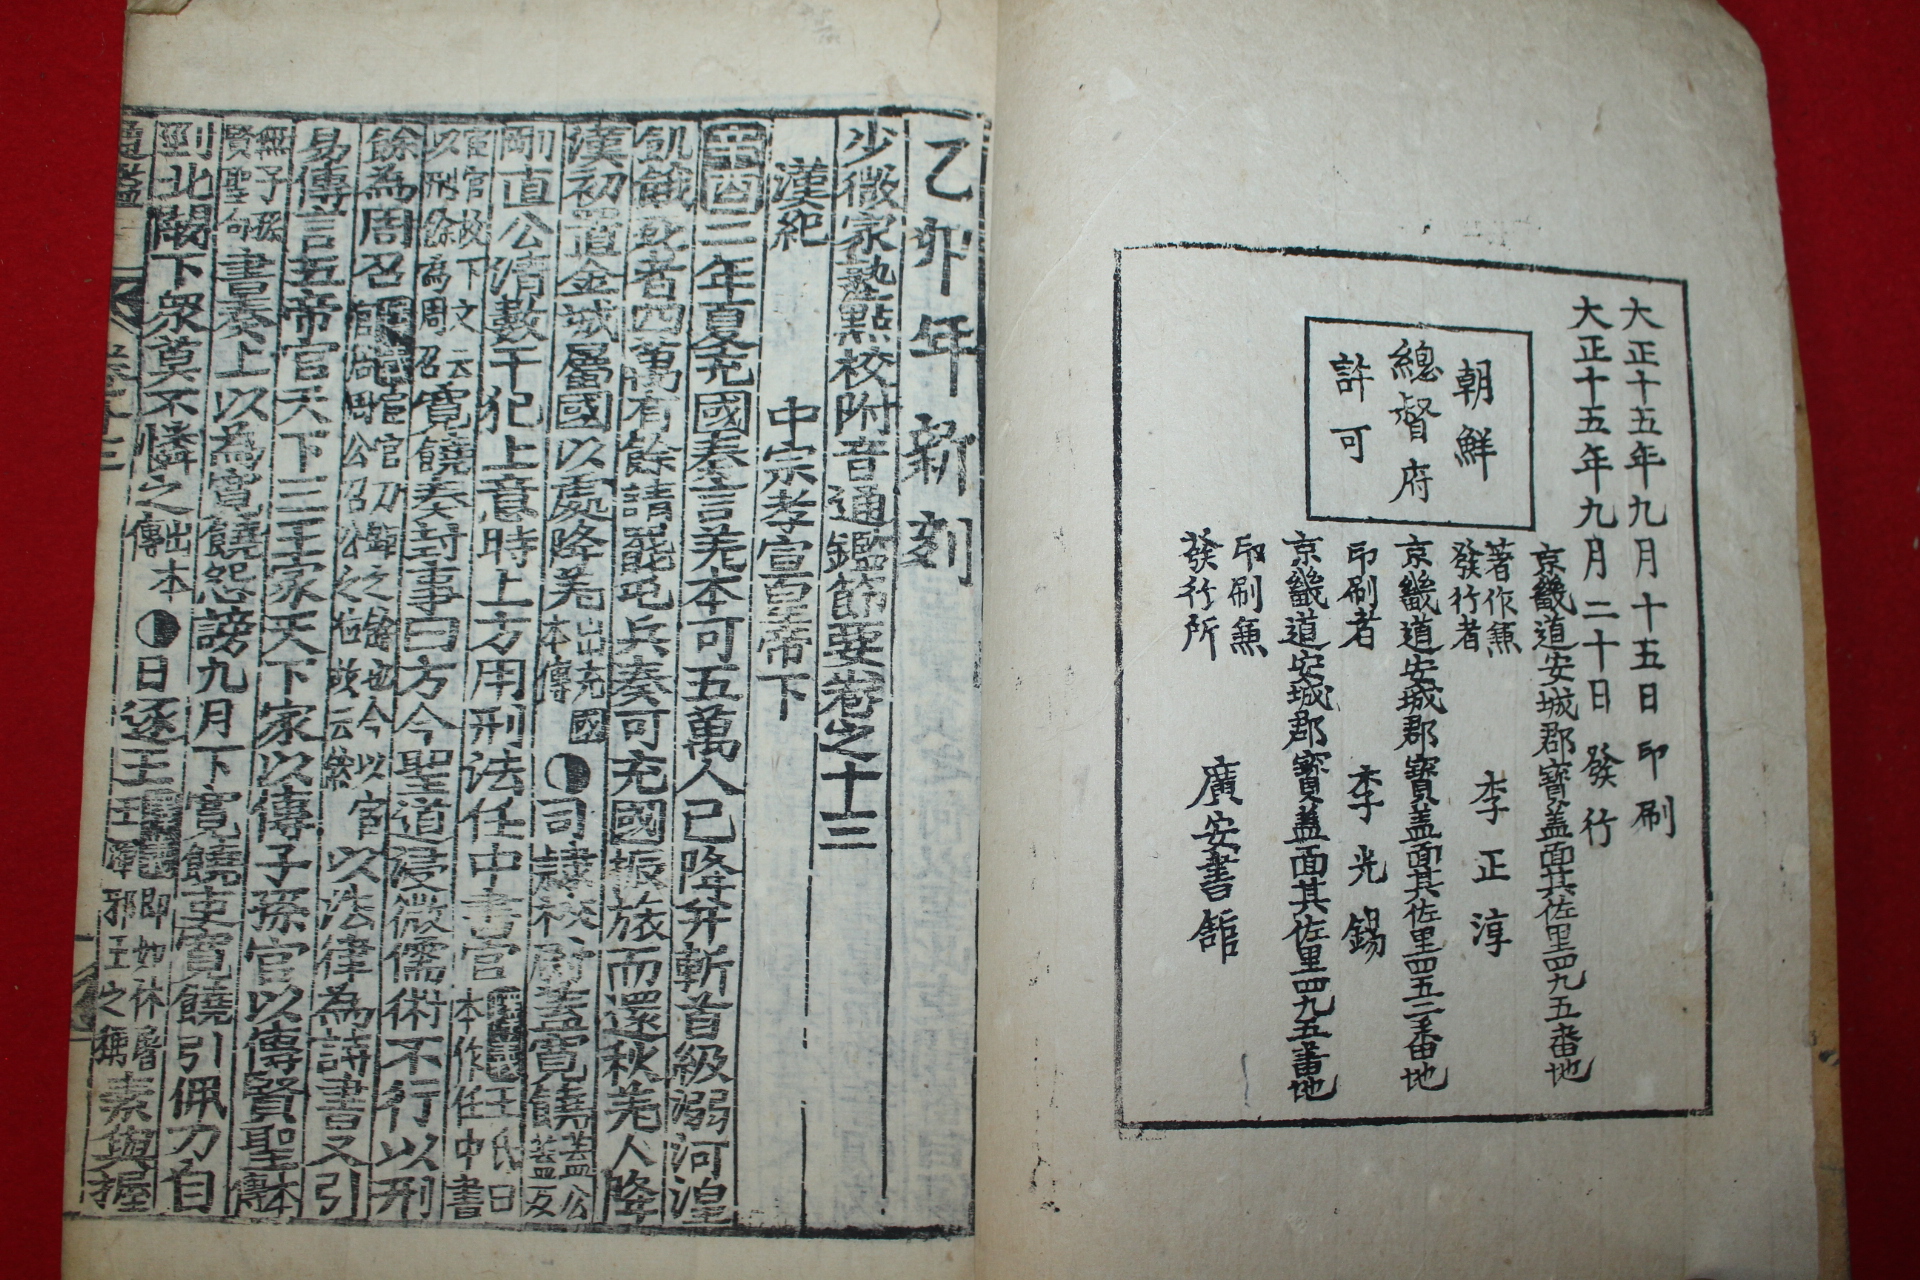 大正十五年九月十五日印刷
大正十五年九月二十日發行
朝鮮
總督府
許可
京畿道安城郡寶盖面其佐里四九五番地
著作兼
發行者
李正淳
京畿道安城郡寶盖面其佐里四五二番地
印刷者
李光錫
京畿道安城郡寶盖面其佐里四九五番地
印刷兼
發行所
廣安書舘
乙卯年新刻
少微家塾點校附音通鑑節要卷之十三
漢紀
中宗孝宣皇帝下
酉二年夏充國奏言羌本可五萬人已降幷斬首級溺河湟
飢餓死者四萬有餘請罷屯兵奏可充國振旅而還秋羌人降
漢初置金城屬國以處降羌出充國本傳 司隷校尉盖寬饒盖公盍反
剛直公淸數干犯上意時上方用刑法任中書官王氏曰本作任中書
宦官故下文云以刑餘爲周召寬饒奏封事曰方今聖道浸微儒術不行以刑
餘為周召以法律為詩書又引
易傳言五帝官天下三王家天下家以傳子孫官以傳賢聖本傳
無子孫賢聖句書奏上以為寬饒怨謗九月下寬饒吏寬饒引佩刀自
剄北闕下衆莫不憐之出本傳 日逐王素與握